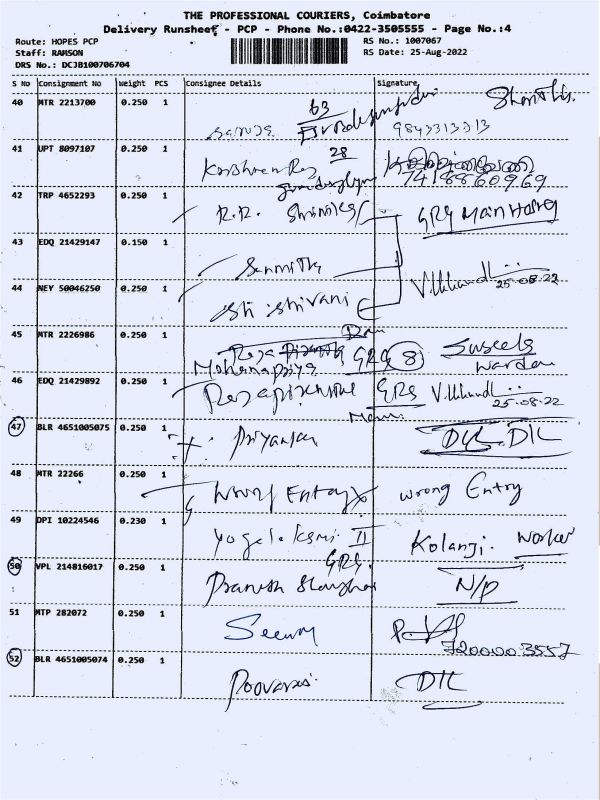 THE PROFESSIONAL COURIERS, Coimbatore
Delivery Runsheet - PCP - Phone No.:0422-3505555 - Page No.:4
Route: HOPES PCP RS No.: 1007067
Staff: RAMSON RS Date: 25-Aug-2022
DRS No.: DCJB100706704
S No Consignment No Weight PCS Consignee Details Signature
40 MTR 2213700 0.250 1 63
9843313313
41 UPT 8097107 0.250 1 28
7418860969
42 TRP 4652293 0.250 1 R.R. GRG Main Hostel
43 EDQ 21429147 0.150 1 Sanmitha
44 NEY 50046250 0.250 1 Sh Shivani 25.08.22
45 MTR 2226986 0.250 1 GRG 8 Suseela
Mohanapriya warden
46 EDQ 21429892 0.250 1 GRG 25.08.22
Main
47 BLR 4651005075 0.250 1 Priyanka D/L D/L
48 MTR 22266 0.250 1 wrong Entry wrong Entry
49 DPI 10224546 0.230 1 Yogalakshmi II Kolanji. worker
GRG.
50 VPL 214816017 0.250 1 Pranesh N/P
51 MTP 282072 0.250 1
720000.3557
52 BLR 4651005074 0.250 1 D/L